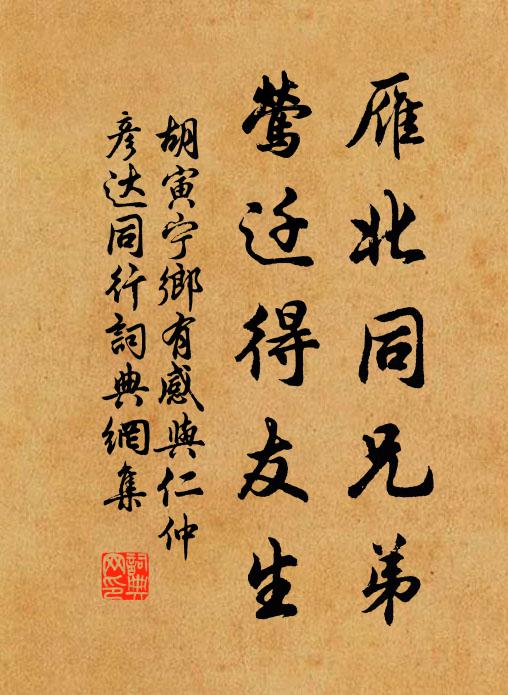 雁北同兄弟
莺迁得友生
胡寅宁鄉有感與仁仲
彦达同行詞典網集
詞典网印